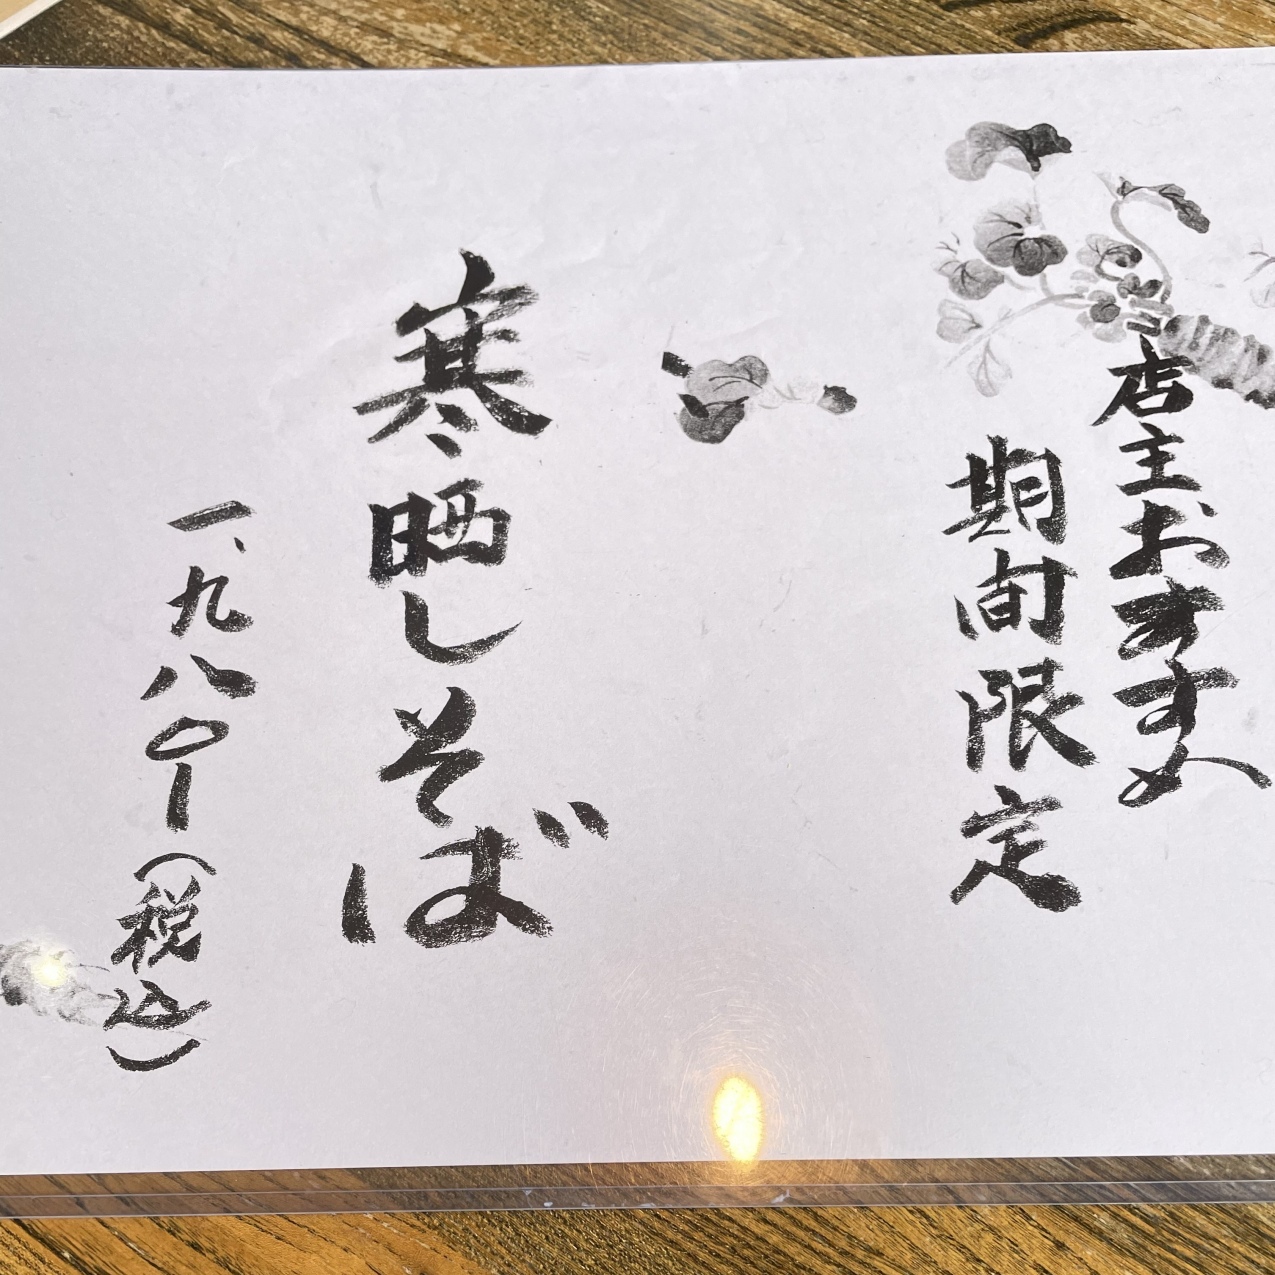 店主おすすめ
期間限定
寒晒しそば
一、九八〇ー(税込)